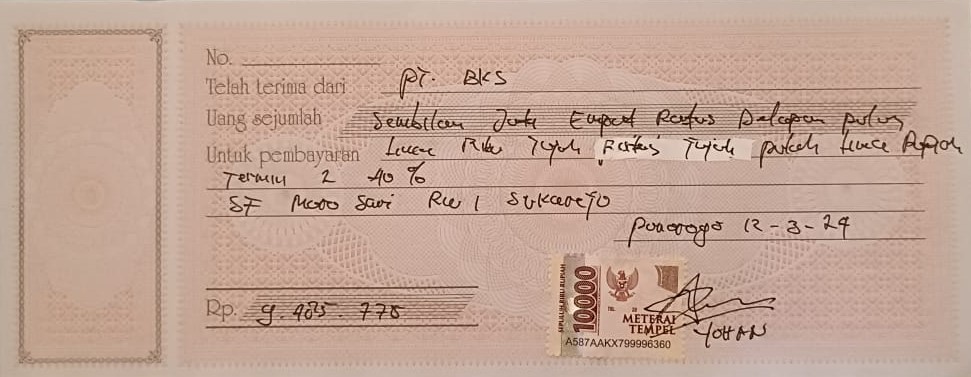 No.
Telah terima dari PT. BKS
Uang sejumlah Sembilan Juta Empat Ratus Delapan puluh
Untuk pembayaran Lima Ribu Tujuh Ratus Tujuh puluh Lima Rupiah
Termin 2 40 %
SF Moro Sari Rw 1 Sukorejo
Ponorogo 12-3-24
Rp. 9.485.775
SEPULUH RIBU RUPIAH
10000
METERAI
TEMPEL
A587AAKX799996360
YOHAN